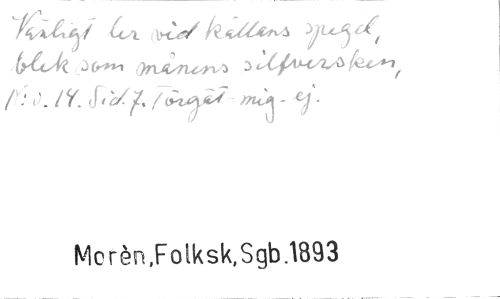 Vänligt ler vid källans spegel,
blek som månens silfversken,
N:o. 14. Sid. 7. Förgät-mig-ej.
Morèn,Folksk,Sgb.1893